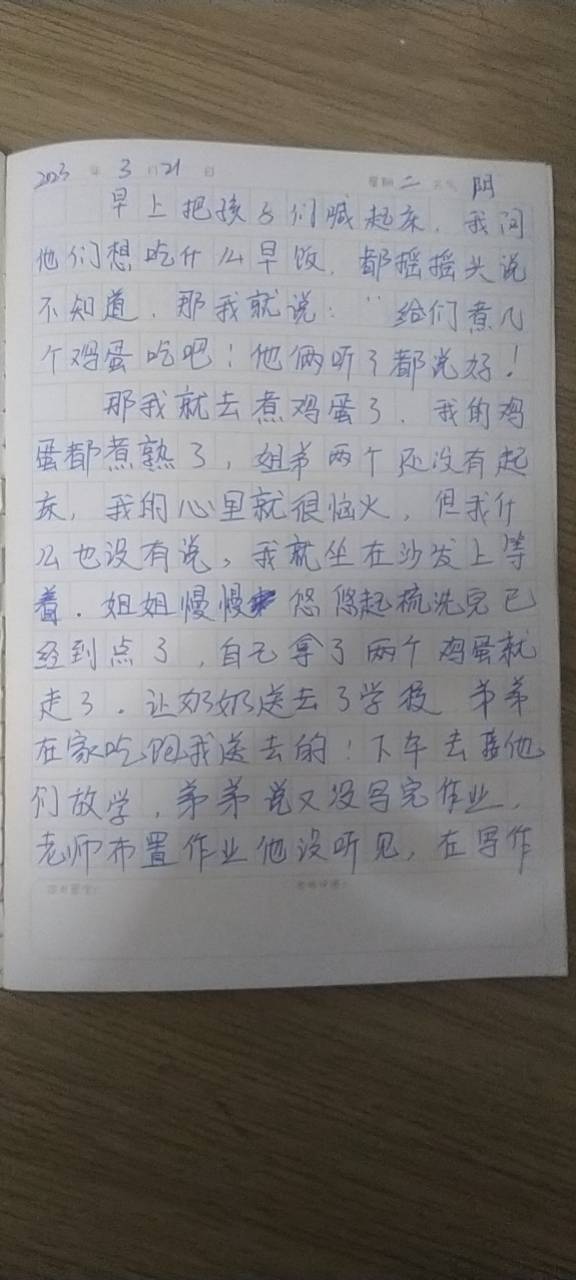 2023 年 3 月 21 日 星期 二 天气 阴
早上把孩子们喊起床，我问
他们想吃什么早饭，都摇摇头说
不知道，那我就说：“给们煮几
个鸡蛋吃吧！他俩听了都说好！
那我就去煮鸡蛋了，我的鸡
蛋都煮熟了，姐弟两个还没有起
床，我的心里就很恼火，但我什
么也没有说，我就坐在沙发上等
着．姐姐慢慢悠悠起梳洗完已
经到点了，自己拿了两个鸡蛋就
走了．让奶奶送去了学校 弟弟
在家吃饱我送去的！下午去接他
们放学，弟弟说又没写完作业，
老师布置作业他没听见，在写作